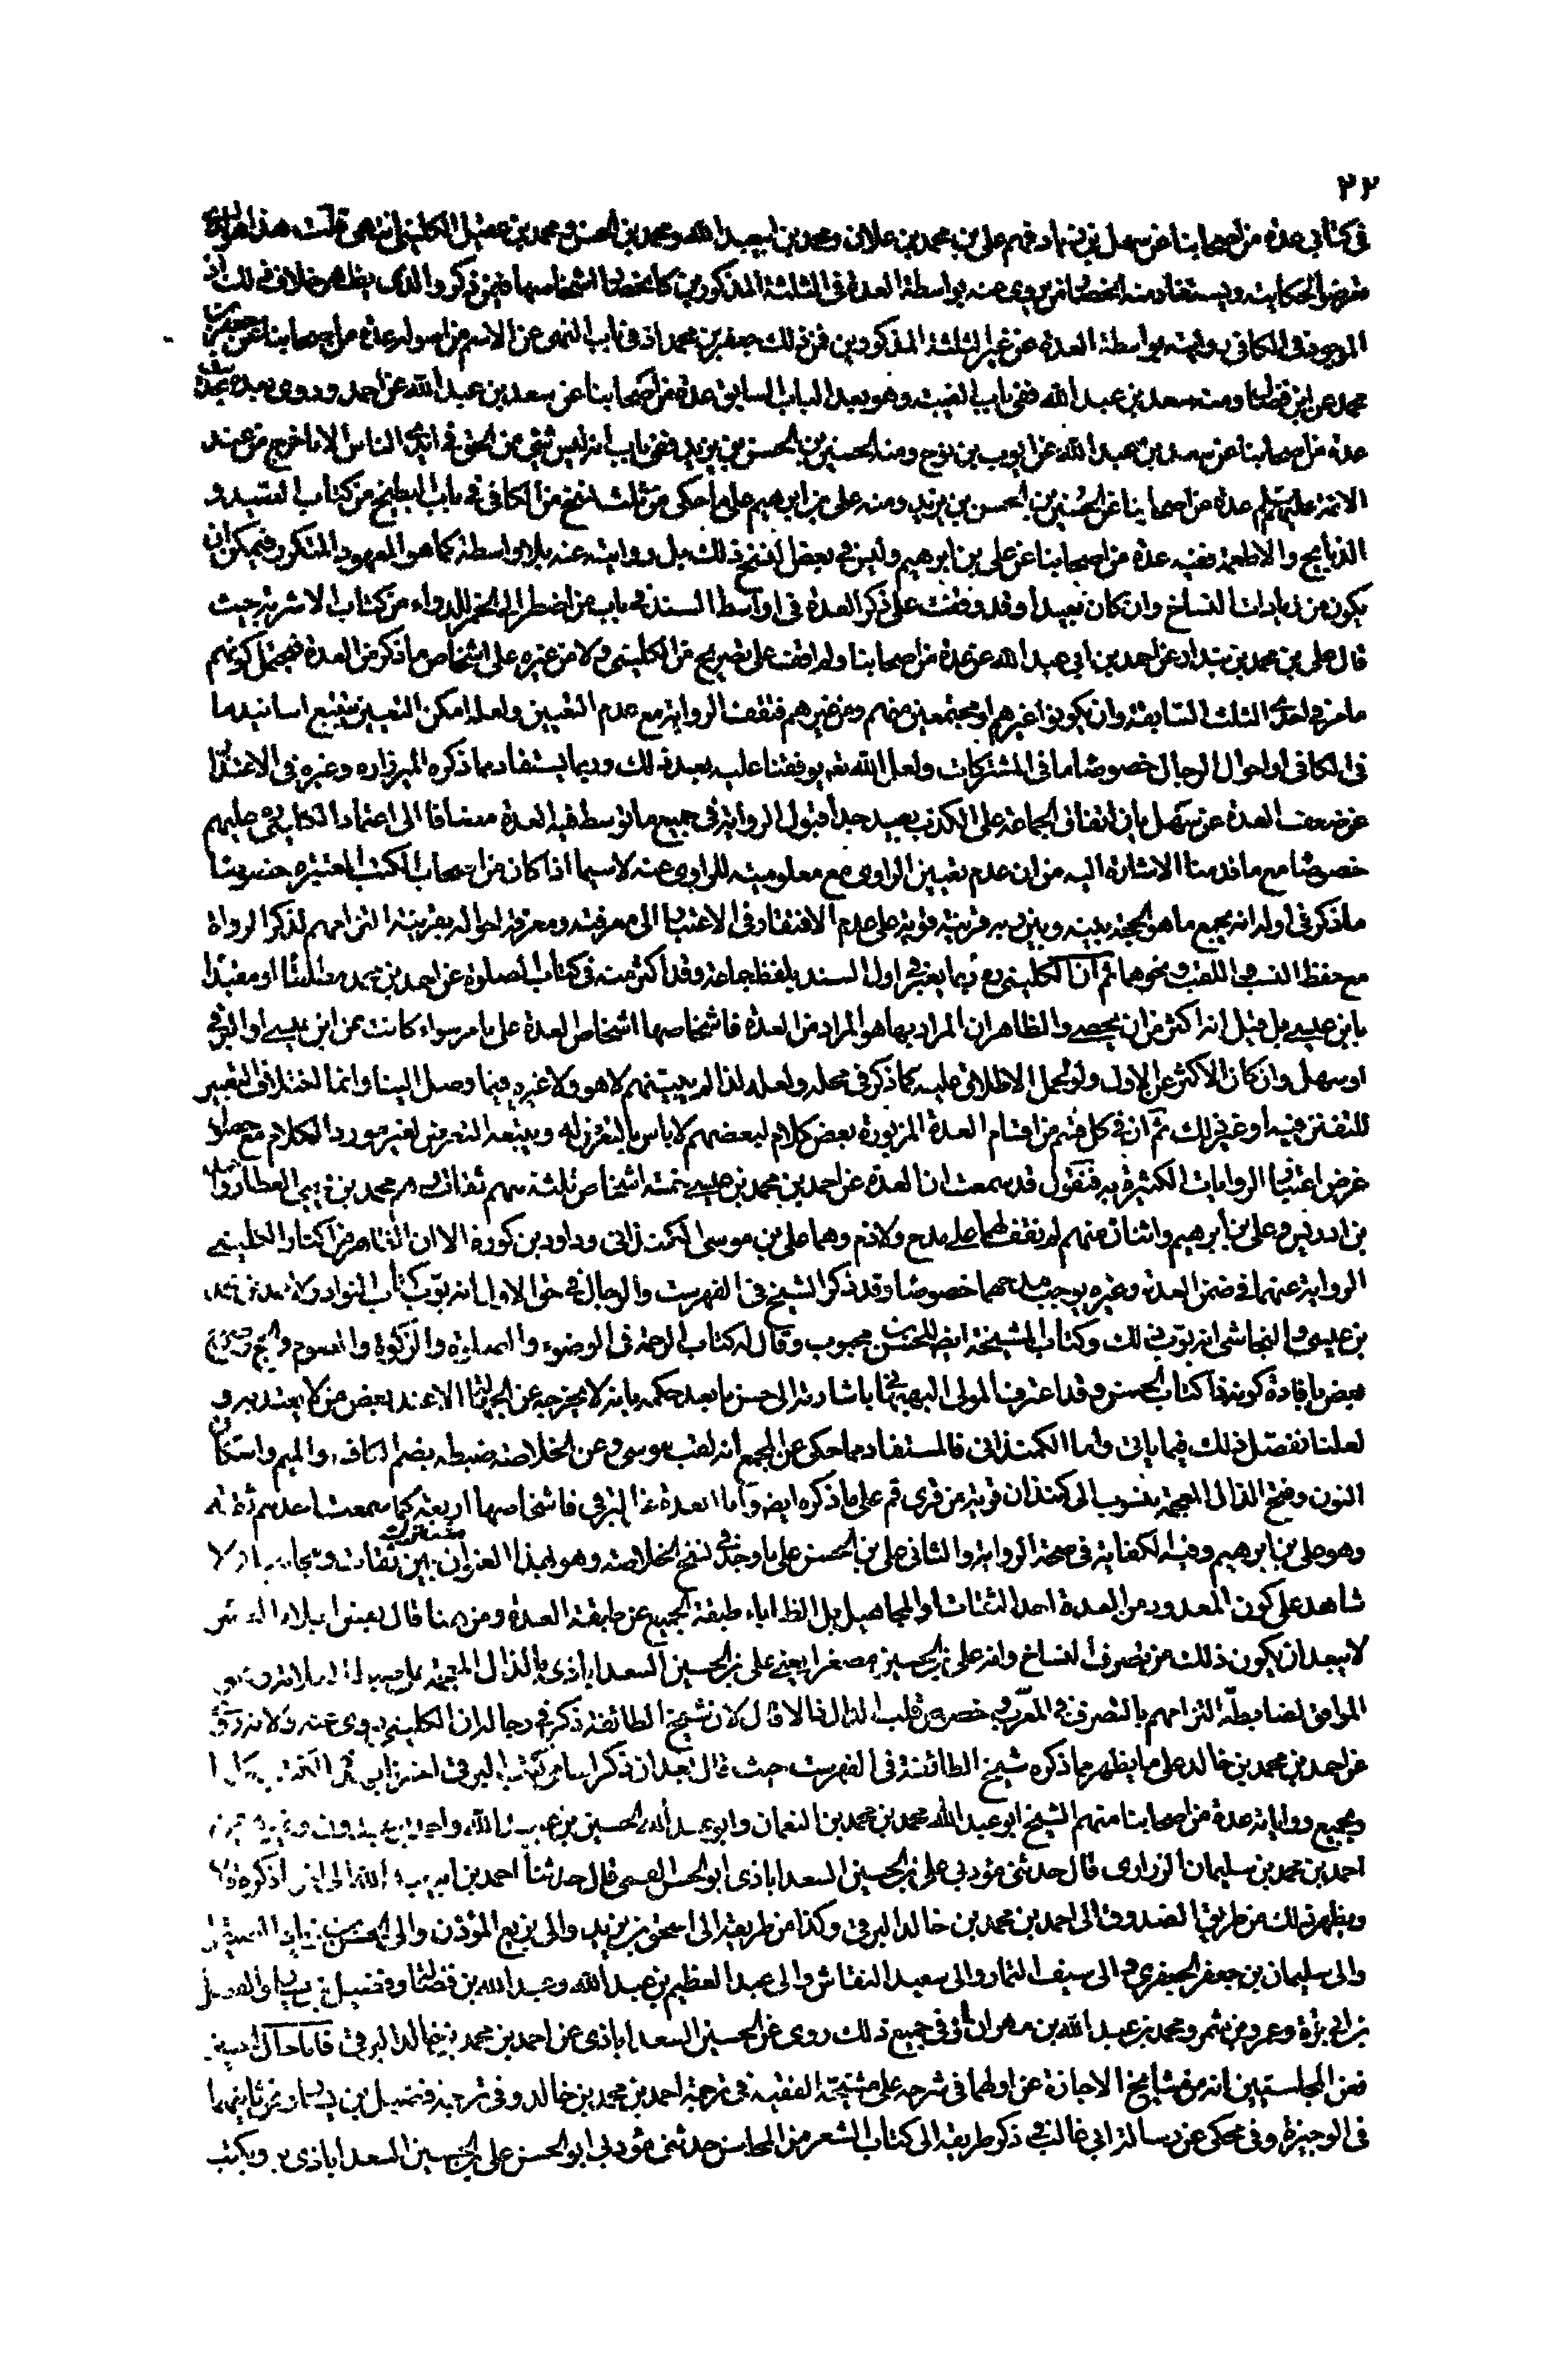 ٢٢
في كتابي عدة من اصحابنا عن سهل بن زياد فهم علي بن محمد بن علان ومحمد بن ابي عبد الله ومحمد بن الحسن ومحمد بن عقيل الكليني انتهى قلت هذا هو
الحكاية ويستفاد منه انحصار من يروى عنه بواسطة العدة في الثلثة المذكورين كانحصار اشخاصها فيمن ذكر والذي يظهر خلاف ذلك اذ
الموجود في الكافي روايته بواسطة العدة عن غير الثلثة المذكورين فمن ذلك جعفر بن محمد اذ في باب النهى عن الاسم من اصوله عدة من اصحابنا عن جعفر بن
محمد عن ابن فضال ومنه سعد بن عبد الله ففي باب الغيبة وهو بعد الباب السابق عدة من اصحابنا عن سعد بن عبد الله عن احمد وروى بعده عن
عدة من اصحابنا عن سعد بن عبد الله عن ايوب بن نوح ومنه الحسين بن الحسن بن يزيد ففي باب انه ليس شئ من الحق في ايدى الناس الا ما خرج من عند
الائمة عليهم السلم عدة من اصحابنا عن الحسين بن الحسن بن يزيد ومنه علي بن ابرهيم على ما حكى من ثلث نسخ من الكافي في باب البطيخ من كتاب الصيد و
الذبايح والاطعمة ففيه عدة من اصحابنا عن علي بن ابرهيم وليس في بعض النسخ ذلك بل روايته عنه بلا واسطة كما هو المعهود المتكرر فيمكن ان
يكون من زيادات النساخ وان كان بعيدا وقد وقفت على ذكر العدة في اواسط السند في باب من اضطر الى الخمر للدواء من كتاب الاشربة حيث
قال علي بن محمد بن بندار عن احمد بن ابي عبد الله عن عدة من اصحابنا ولم اقف على تصريح من الكليني ولا من غيره على اشخاص ما ذكر من العدة فيحتمل كونهم
ما مر في احدى الثلث السابقة وان يكونوا غيرهم او مجتمعين منهم ومن غيرهم فتقف الرواية مع عدم التعيين ولعله امكن التعيين بتتبع اسانيد ما
في الكافي او احوال الرجال خصوصا ما في المشتركات ولعل الله تع يوفقنا عليه بعد ذلك وربما يستفاد مما ذكره الميرزا ره وغيره في الاعتذار
عن ضعف العدة عن سهل بان اتفاق الجماعة على الكذب بعيد جدا قبول الرواية في جميع ما توسط فيه العدة مضافا الى اعتماد الكليني ره عليهم
خصوصا مع ما قدمنا الاشارة اليه من ان عدم تعيين الراوي مع معلوميته للراوي عنه لا سيما اذا كان من اصحاب الكتب المعتبرة خصوصا
ما ذكر في اوله انه يجمع ما هو الحجة بينه وبين ربه قرينة قوية على عدم الافتقار في الاعتبار الى معرفته ومعرفة احواله بقرينة التزامهم لذكر الرواة
مع حفظ النسب او اللقب ونحوهما ثم ان الكليني ره ربما يعبر في اول السند بلفظ جماعة وقد اكثر منه في كتاب الصلوة عن احمد بن محمد مطلقا او مقيدا
بابن عيسى بل قيل انه اكثر من ان يحصى والظاهر ان المراد بها هو المراد من العدة فاشخاصها اشخاص العدة على ما مر سواء كانت عن ابن عيسى او البرقي
او سهل وان كان الاكثر عن الاول ولو بحمل الاطلاق عليه كما ذكر في محله ولعله لذا لم يعينهم لا هو ولا غيره فيما وصل الينا وانما اختلاف التعبير
للتفنن فيه او غير ذلك ثم ان في كل قسم من اقسام العدة المزبورة بعض كلام لبعضهم لا باس بالتعرض له ويتبعه التعرض لغير مورد الكلام مع حصول
غرض اعتبار الروايات الكثيرة به فنقول قد سمعت ان العدة عن احمد بن محمد بن عيسى خمسة اشخاص ثلثة منهم ثقات وهم محمد بن يحيى العطار واحمد
بن ادريس وعلي بن ابرهيم واثنان منهم لم نقف لهما على مدح ولا ذم وهما علي بن موسى الكمنذاني وداود بن كورة الا ان الظاهر من اكثار الكليني
الرواية عنهما في ضمن العدة وغيره يوجب مدحهما خصوصا وقد ذكر الشيخ في الفهرست والرجال في حق الاول انه بوب كتاب النوادر لاحمد بن محمد
بن عيسى والنجاشي انه بوب ذلك وكتاب المشيخة ايضا للحسن بن محبوب وقال له كتاب الرحمة في الوضوء والصلوة والزكوة والصوم والحج وصرح
بعض بافادة كونه ذا كتاب الحسن وقد اعترف المولى البهبهاني باشارته الى حسن ما بعد حكمه بانه لا يخرجه عن الجهالة الا عند بعض من لا يعتد به و
لعلنا نفصل ذلك فيما ياتي واما الكمنذاني فالمستفاد مما حكى عن المجمع انه لقب موسى وعن الخلاصة ضبطه بضم الكاف والميم واسكان
النون وفتح الذال المعجمة منسوب الى كمنذان قرية من قرى قم على ما ذكره ايضا واما العدة عن البرقي فاشخاصها اربعة كما سمعت احدهم ثقة
وهو علي بن ابرهيم وفيه الكفاية في صحة الرواية والثاني علي بن الحسن على ما وجد في نسخ الخلاصة وهو بهذا العنوان مشترك بين ثقات ومجاهيل ولا
شاهد على كون المعدود من العدة احد الثقات او المجاهيل بل الظ اباء طبقة الجميع عن طبقة العدة ومن هنا قال بعض
لا يبعد ان يكون ذلك من تصرف النساخ وانه علي بن الحسين مصغرا يعني علي بن الحسين السعدآباذى بالذال المعجمة
الموافق لضابطة التزامهم بالتصرف في المعرب خصوص قلب الدال ذالا قال لان شيخ الطائفة ذكر في رجاله ان الكليني يروى عنه ولانه روى
عن احمد بن محمد بن خالد على ما يظهر مما ذكره شيخ الطائفة في الفهرست حيث قال بعد ان ذكر اسامي كتب البرقي اخبرنا بهذه الكتب كلها
وبجميع رواياته عدة من اصحابنا منهم الشيخ ابو عبد الله محمد بن محمد بن النعمان وابو عبد الله الحسين بن عبيد الله واحمد بن عبدون وغيرهم عن
احمد بن محمد بن سليمان الزرارى قال حدثني مؤدبي علي بن الحسين السعدآباذى ابو الحسن القمى قال حدثنا احمد بن ابي عبد الله الى اخر ما ذكره قال
ويظهر ذلك من طريق الصدوق الى احمد بن محمد بن خالد البرقي وكذا من طريقه الى اسحق بن يزيد والى بزيع المؤذن والى الحسن بن زياد الصيقل
والى سليمان بن جعفر الجعفري والى سيف التمار والى سعيد النقاش والى عبد العظيم بن عبد الله وعبد الله بن فضالة وفضيل بن يسار والفضل
بن ابي قرة وعمرو بن شمر ومحمد بن عبد الله بن مهران ففي جميع ذلك روى عن الحسين السعدآباذى عن احمد بن محمد بن خالد البرقي قال واما حال الحسين
فعن المجلسيين انه من مشايخ الاجازة عن اولهما في شرحه على مشيخة الفقيه في ترجمة احمد بن محمد بن خالد وفي ترجمة فضيل بن يسار وعن ثانيهما
في الوجيزة وفي محكى عن رسالة ابي غالب في ذكر طريقه الى كتاب الشعر من المحاسن حدثني مؤدبي ابو الحسن علي بن الحسين السعدآباذى به وبكتب